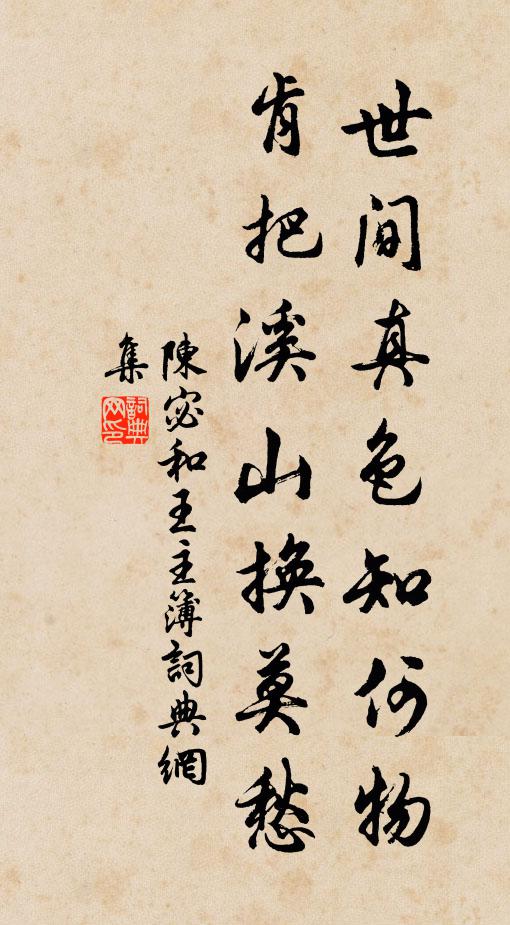 世間真色知何物
肯把溪山換莫愁
陳宓和王主簿詞典網
集
詞典
网印